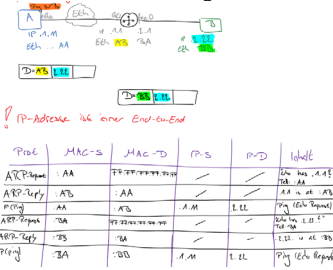 A
Eth
B
IP .1.11
Eth ... AA
.1.1
Eth AB
2.1
BA
IP 2.22
Eth BB
D=AB 2.22
D=BB 2.22
! IP-Adresse ist immer End-to-End
Prot MAC-S MAC-D IP-S IP-D Inhalt
ARP-Request :AA FF:FF:FF:FF:FF:FF / / Who has .1.1?
Tell :AA
ARP-Reply :AB :AA / / .1.1 is at :AB
IP(Ping) :AA :AB .1.11 2.22 Ping (Echo Request)
ARP-Request :BA FF:FF:FF:FF:FF:FF / / Who has .2.22?
Tell BA
ARP-Reply :BB :BA / / .2.22 is at :BB
IP(Ping) :BA :BB .1.11 2.22 Ping (Echo Request)